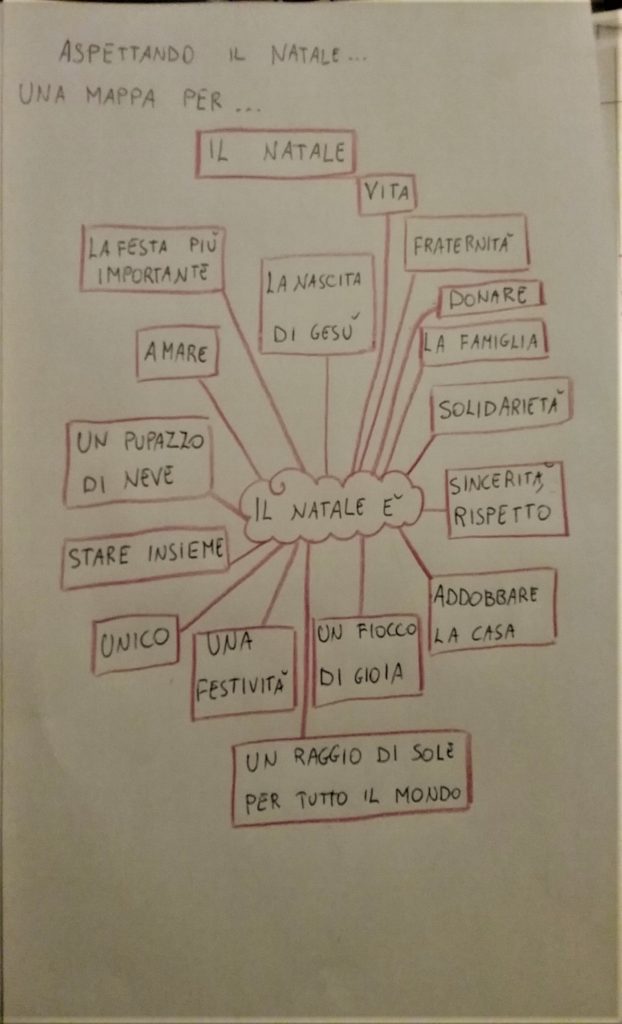 ASPETTANDO IL NATALE...
UNA MAPPA PER ...
IL NATALE
VITA
LA FESTA PIÙ
IMPORTANTE
LA NASCITA
DI GESÙ
FRATERNITÀ
DONARE
LA FAMIGLIA
AMARE
SOLIDARIETÀ
UN PUPAZZO
DI NEVE
IL NATALE È
SINCERITÀ,
RISPETTO
STARE INSIEME
ADDOBBARE
LA CASA
UNICO
UNA
FESTIVITÀ
UN FIOCCO
DI GIOIA
UN RAGGIO DI SOLE
PER TUTTO IL MONDO